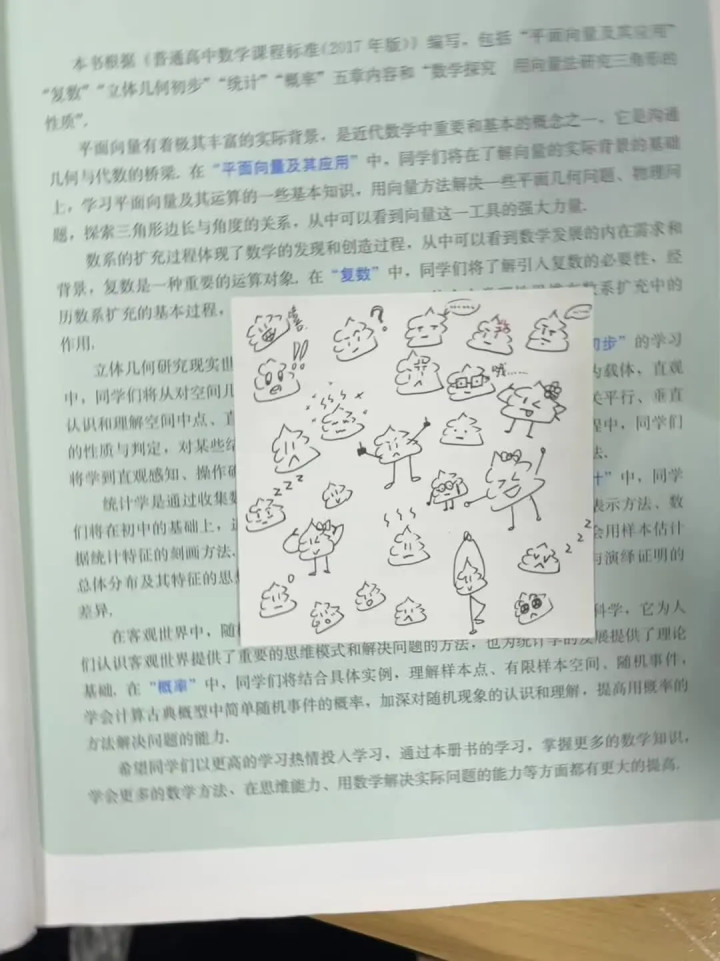 本书根据《普通高中数学课程标准(2017年版)》编写，包括“平面向量及其应用”
“复数”“立体几何初步”“统计”“概率”五章内容和“数学探究 用向量法研究三角形的
性质”.
平面向量有着极其丰富的实际背景，是近代数学中重要和基本的概念之一，它是沟通
几何与代数的桥梁. 在“平面向量及其应用”中，同学们将在了解向量的实际背景的基础
上，学习平面向量及其运算的一些基本知识，用向量方法解决一些平面几何问题、物理问
题，探索三角形边长与角度的关系，从中可以看到向量这一工具的强大力量.
数系的扩充过程体现了数学的发现和创造过程，从中可以看到数学发展的内在需求和
背景，复数是一种重要的运算对象. 在“复数”中，同学们将了解引入复数的必要性，经
历数系扩充的基本过程，
数系扩充中的
作用.
立体几何研究现实世
初步”的学习
中，同学们将从对空间几
为载体，直观
认识和理解空间中点、直
关平行、垂直
的性质与判定，对某些结
程中，同学们
将学到直观感知、操作确
法.
统计学是通过收集数
计”中，同学
们将在初中的基础上，进
表示方法、数
据统计特征的刻画方法.
会用样本估计
总体分布及其特征的思想
与演绎证明的
差异.
在客观世界中，随机
科学，它为人
们认识客观世界提供了重要的思维模式和解决问题的方法，也为统计学的发展提供了理论
基础. 在“概率”中，同学们将结合具体实例，理解样本点、有限样本空间、随机事件，
学会计算古典概型中简单随机事件的概率，加深对随机现象的认识和理解，提高用概率的
方法解决问题的能力.
希望同学们以更高的学习热情投入学习，通过本册书的学习，掌握更多的数学知识，
学会更多的数学方法，在思维能力、用数学解决实际问题的能力等方面都有更大的提高.
?
!!
哦......
zzz
zzz